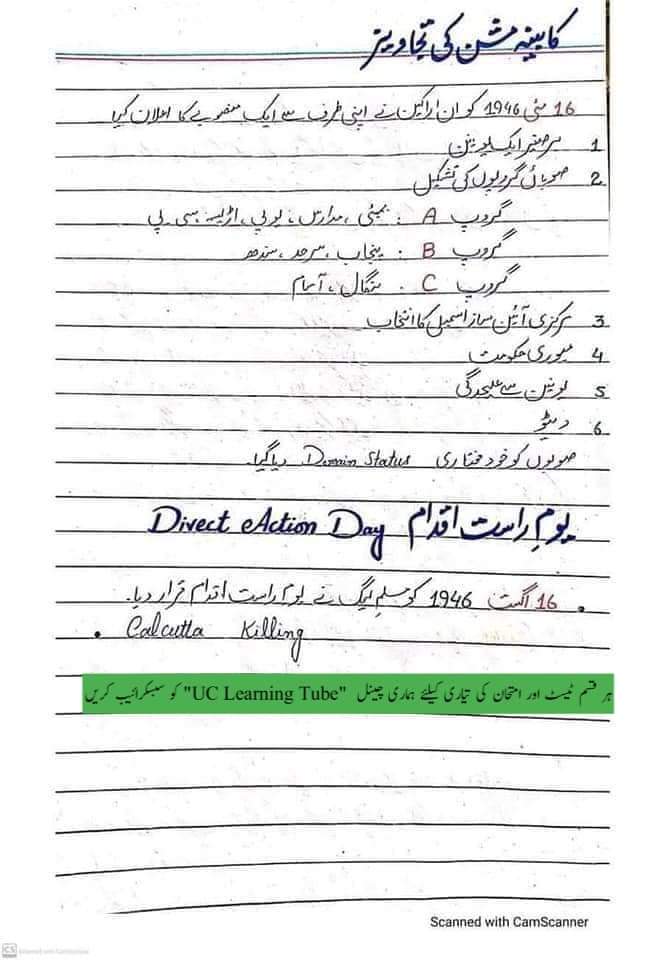 کابینہ مشن کی تجاویز
16 مئی 1946 کو ان اراکین نے اپنی طرف سے ایک منصوبے کا اعلان کیا
1 برصغیر ایک یونین
2 صوبائی گروپوں کی تشکیل
گروپ A : بمبئی ، مدارس ، یوپی ، اڑیسہ ، سی پی
گروپ B : پنجاب ، سرحد ، سندھ
گروپ C : بنگال ، آسام
3 مرکزی آئین ساز اسمبلی کا انتخاب
4 عبوری حکومت
5 یونین سے علیحدگی
6 ویٹو
صوبوں کو خودمختاری Domin Status دیا گیا۔
یومِ راست اقدام Direct Action Day
• 16 اگست 1946 کو مسلم لیگ نے یوم راست اقدام قرار دیا۔
• Calcutta Killing
ہر قسم ٹیسٹ اور امتحان کی تیاری کیلئے ہماری چینل "UC Learning Tube" کو سبسکرائیب کریں
Scanned with CamScanner
CS Scanned with CamScanner